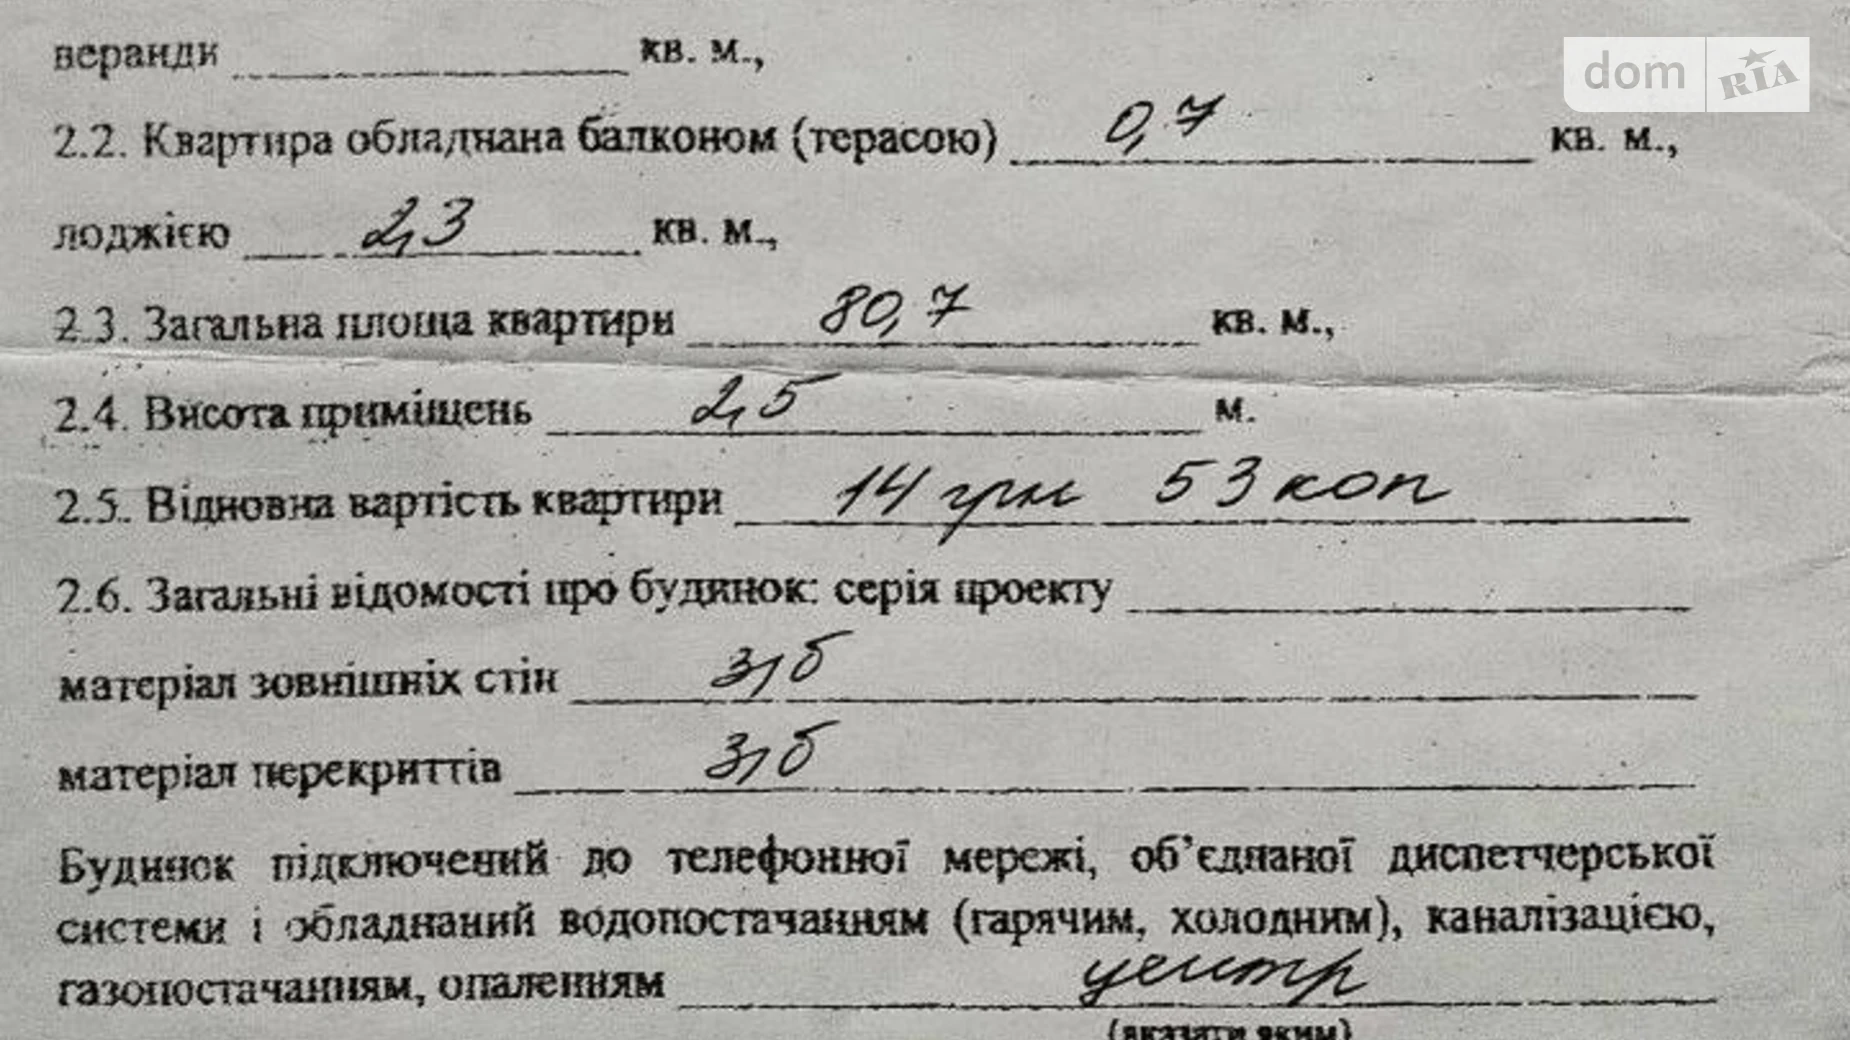 dom RIA
веранди кв. м.,
2.2. Квартира обладнана балконом (терасою) 0,7 кв. м.,
лоджією 2,3 кв. м.,
2.3. Загальна площа квартири 80,7 кв. м.,
2.4. Висота приміщень 2,5 м.
2.5. Відновна вартість квартири 14 грн 53 коп
2.6. Загальні відомості про будинок: серія проекту
матеріал зовнішніх стін з/б
матеріал перекриттів з/б
Будинок підключений до телефонної мережі, об’єднаної диспетчерської
системи і обладнаний водопостачанням (гарячим, холодним), каналізацією,
газопостачанням, опаленням центр
(вказати яким)